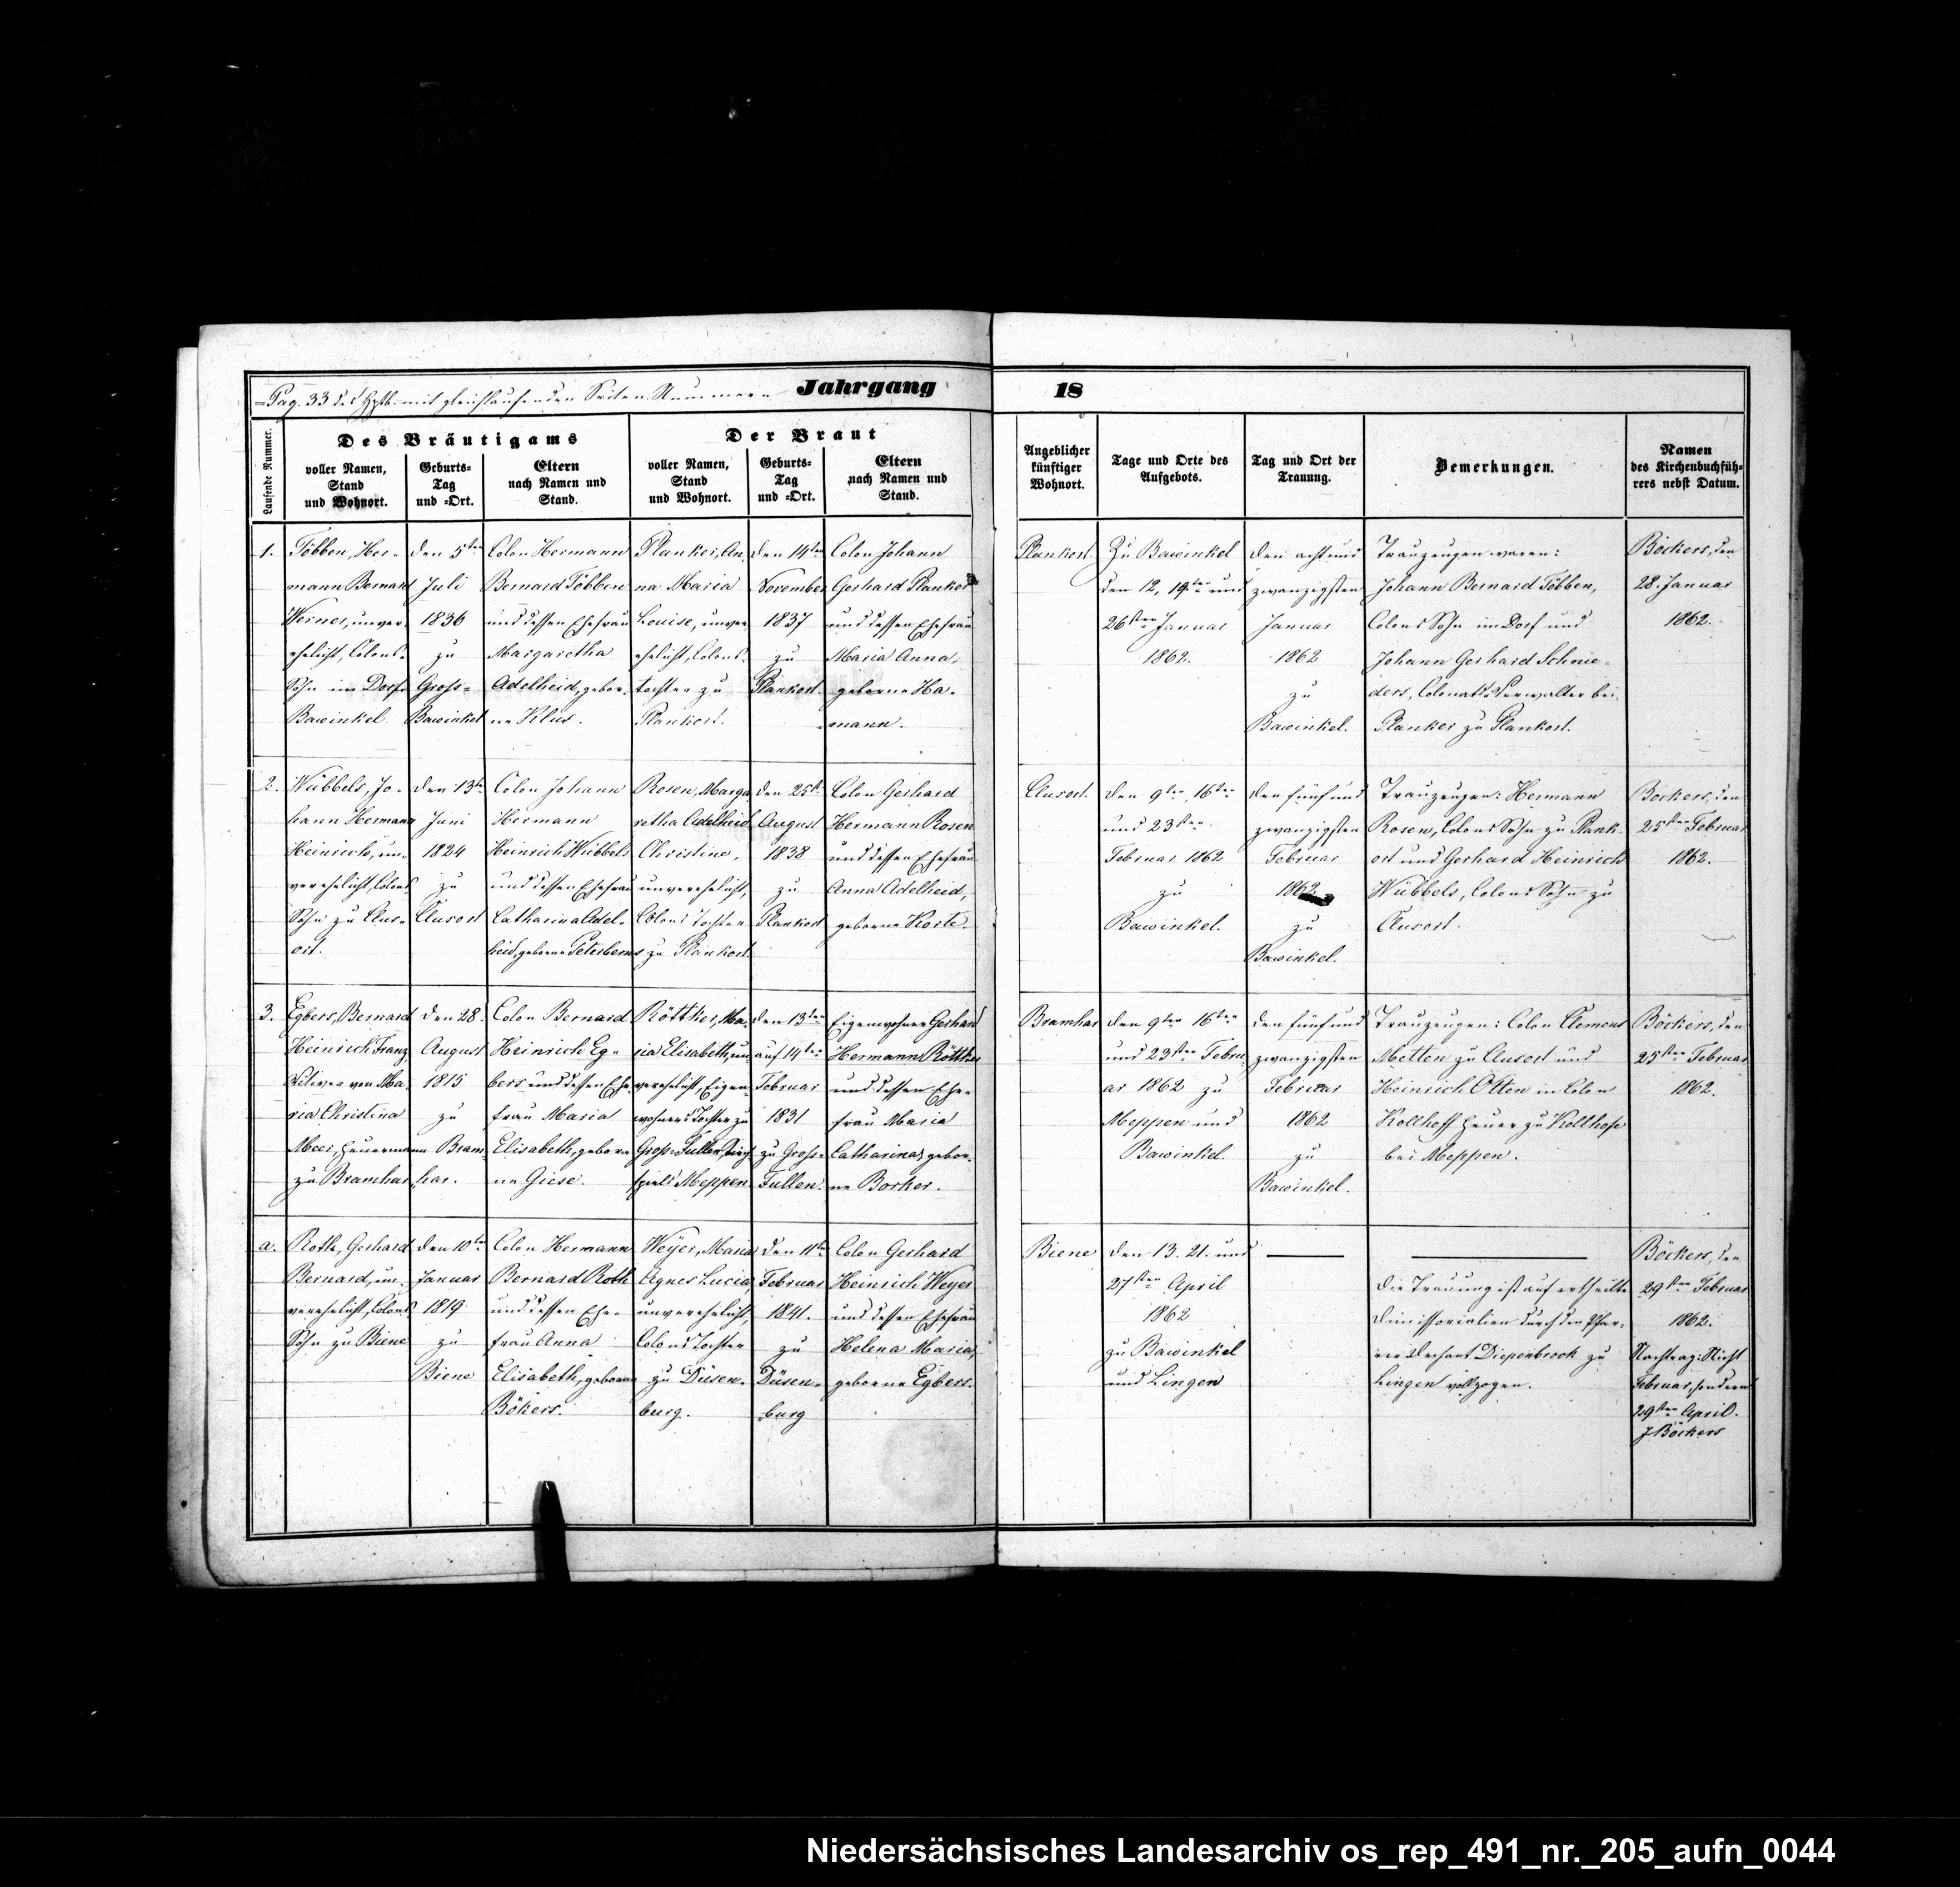 = Pag. 33 des Hptb. mit gleichlaufenden Seiten Nummern
Jahrgang 18
Laufende Nummer.
Des Bräutigams
voller Namen,
Stand
und Wohnort.
Geburts=
Tag
und =Ort.
Eltern
nach Namen und
Stand.
Der Braut
voller Namen,
Stand
und Wohnort.
Geburts=
Tag
und =Ort.
Eltern
nach Namen und
Stand.
Angeblicher
künftiger
Wohnort.
Tage und Orte des
Aufgebots.
Tag und Ort der
Trauung.
Bemerkungen.
Namen
des Kirchenbuchfüh=
rers nebst Datum.
1.
Többen, Her=
mann Bernard
Werner, unver=
ehelicht, Colons=
Sohn im Dorf
Bawinkel
den 5ten
Juli
1836
zu
Gross=
Bawinkel
Colon Hermann
Bernard Többen
und dessen Ehefrau
Margaretha
Adelheid, gebor=
ne Klus.
Planker, An=
na Maria
Louise, unver=
ehelicht, Colons=
tochter zu
Plankort.
den 14ten
November
1837
zu
Plankort.
Colon Johann
Gerhard Planker
und dessen Ehefrau
Maria Anna,
geborne Ha=
mann.
Plankort.
Zu Bawinkel
den 12, 19ten und
26sten Januar
1862.
den acht und
zwanzigsten
Januar
1862
zu
Bawinkel.
Trauzeugen waren:
Johann Bernard Többen,
Colons Sohn im Dorf und
Johann Gerhard Schnie=
ders, Colonats Verwalter bei
Planker zu Plankort.
Böckers, den
28. Januar
1862.
2.
Wübbels, Jo=
hann Hermann
Heinrich, un=
verehelicht, Colons
Sohn zu Clus=
ort.
den 13ten
Juni
1824
zu
Clusort
Colon Johann
Hermann
Heinrich Wübbels
und dessen Ehefrau
Catharina Adel=
heid, geborne Petersberns
Rosen, Marga
retha Adelheid
Christine,
unverehelicht,
Colons Tochter
zu Plankort
den 25st.
August
1838
zu
Plankort
Colon Gerhard
Hermann Rosen
und dessen Ehefrau
Anna Adelheid,
geborne Korte.
Clusort.
den 9ten, 16ten
und 23sten
Februar 1862
zu
Bawinkel.
den fünf und
zwanzigsten
Februar
1862
zu
Bawinkel.
Trauzeugen: Hermann
Rosen, Colons Sohn zu Plank=
ort und Gerhard Heinrich
Wübbels, Colons Sohn zu
Clusort.
Böckers, den
25sten Februar
1862.
3.
Egbers, Bernard
Heinrich Franz,
Witwer von Ma=
ria Christina
Meer, Heuermann
zu Bramhar
den 28.
August
1815
zu
Bram=
har.
Colon Bernard
Heinrich Eg=
bers und dessen Ehe=
frau Maria
Elisabeth, gebor=
ne Giese.
Röttker, Ma=
ria Elisabeth, un=
verehelicht, Eigen=
wohners Tochter zu
Gross=Fullen, Kirch
spiels Meppen
den 13ten
auf 14ten
Februar
1831
zu Gross=
Fullen.
Eigenwohner Gerhard
Hermann Röttker
und dessen Ehe=
frau Maria
Catharina, gebor=
ne Borker.
Bramhar
den 9ten 16ten
und 23sten Febru=
ar 1862 zu
Meppen und
Bawinkel.
den fünf und
zwanzigsten
Februar
1862
zu
Bawinkel.
Trauzeugen: Colon Clemens
Metten zu Clusort und
Heinrich Otten in Colon
Kollhoff Heuer zu Kollhofe
bei Meppen.
Böckers, den
25sten Februar
1862.
a.
Roth, Gerhard
Bernard, un=
verehelicht, Colons
Sohn zu Biene
den 10ten
Januar
1819
zu
Biene
Colon Hermann
Bernard Roth
und dessen Ehe=
frau Anna
Elisabeth, geborne
Bökers.
Weyer, Maria
Agnes Lucia,
unverehelicht,
Colons Tochter
zu Düsen=
burg.
den 11ten
Februar
1841.
zu
Düsen=
burg
Colon Gerhard
Heinrich Weyer
und dessen Ehefrau
Helena Maria,
geborne Egbers.
Biene
den 13. 21. und
27sten April
1862
zu Bawinkel
und Lingen
Die Trauung ist auf ertheilte
Dimissorialien durch den Pfar=
rer Dechant Diepenbrock zu
Lingen vollzogen.
Böckers, den
29sten Februar
1862.
Nachtrag: Nicht
Februar, sondern
29sten April.
J Böckers
Niedersächsisches Landesarchiv os_rep_491_nr._205_aufn_0044